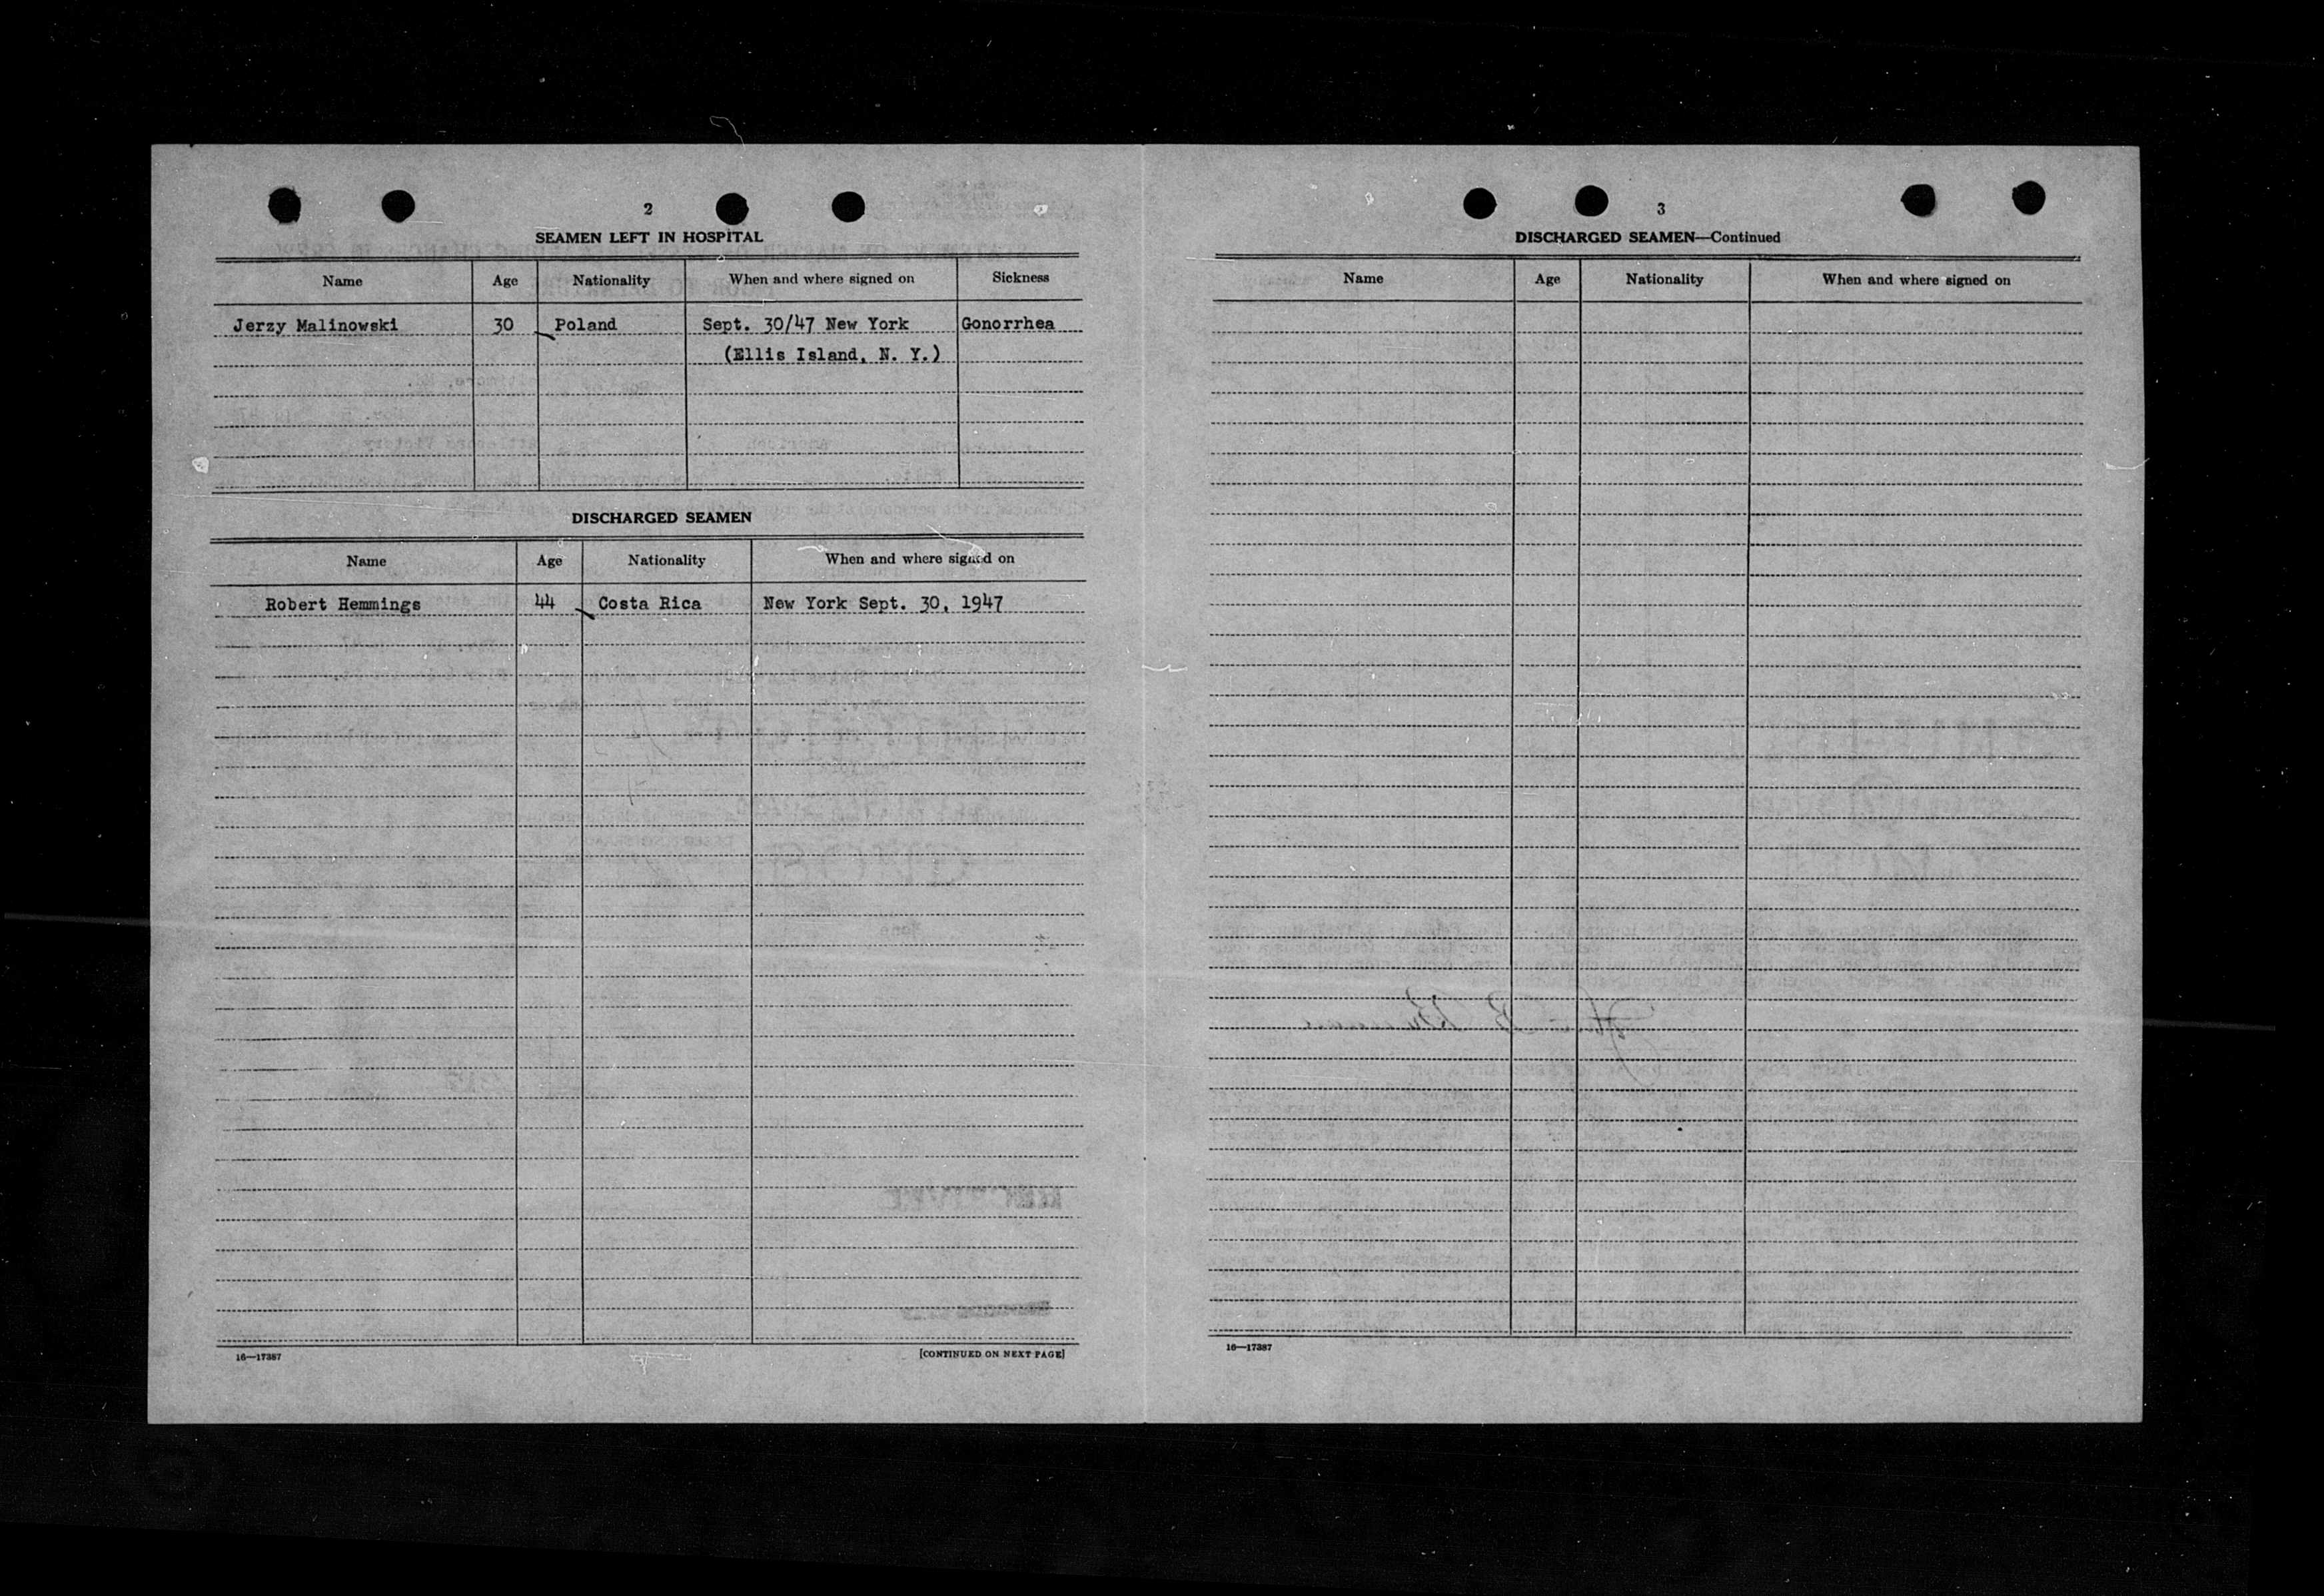 2
SEAMEN LEFT IN HOSPITAL
Name Age Nationality When and where signed on Sickness
Jerzy Malinowski 30 Poland Sept. 30/47 New York Gonorrhea
(Ellis Island, N. Y.)
DISCHARGED SEAMEN
Name Age Nationality When and where signed on
Robert Hemmings 44 Costa Rica New York Sept. 30, 1947
16—17387 [CONTINUED ON NEXT PAGE]
3
DISCHARGED SEAMEN—Continued
Name Age Nationality When and where signed on
16—17387